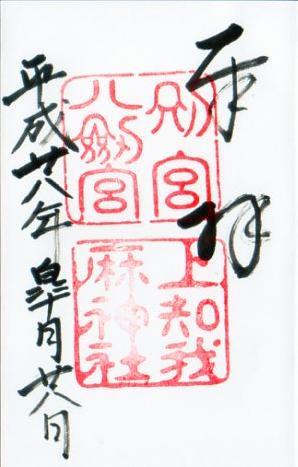 奉拝
別宮
八剣宮
上知我
麻神社
平成廿八年皐月廿八日